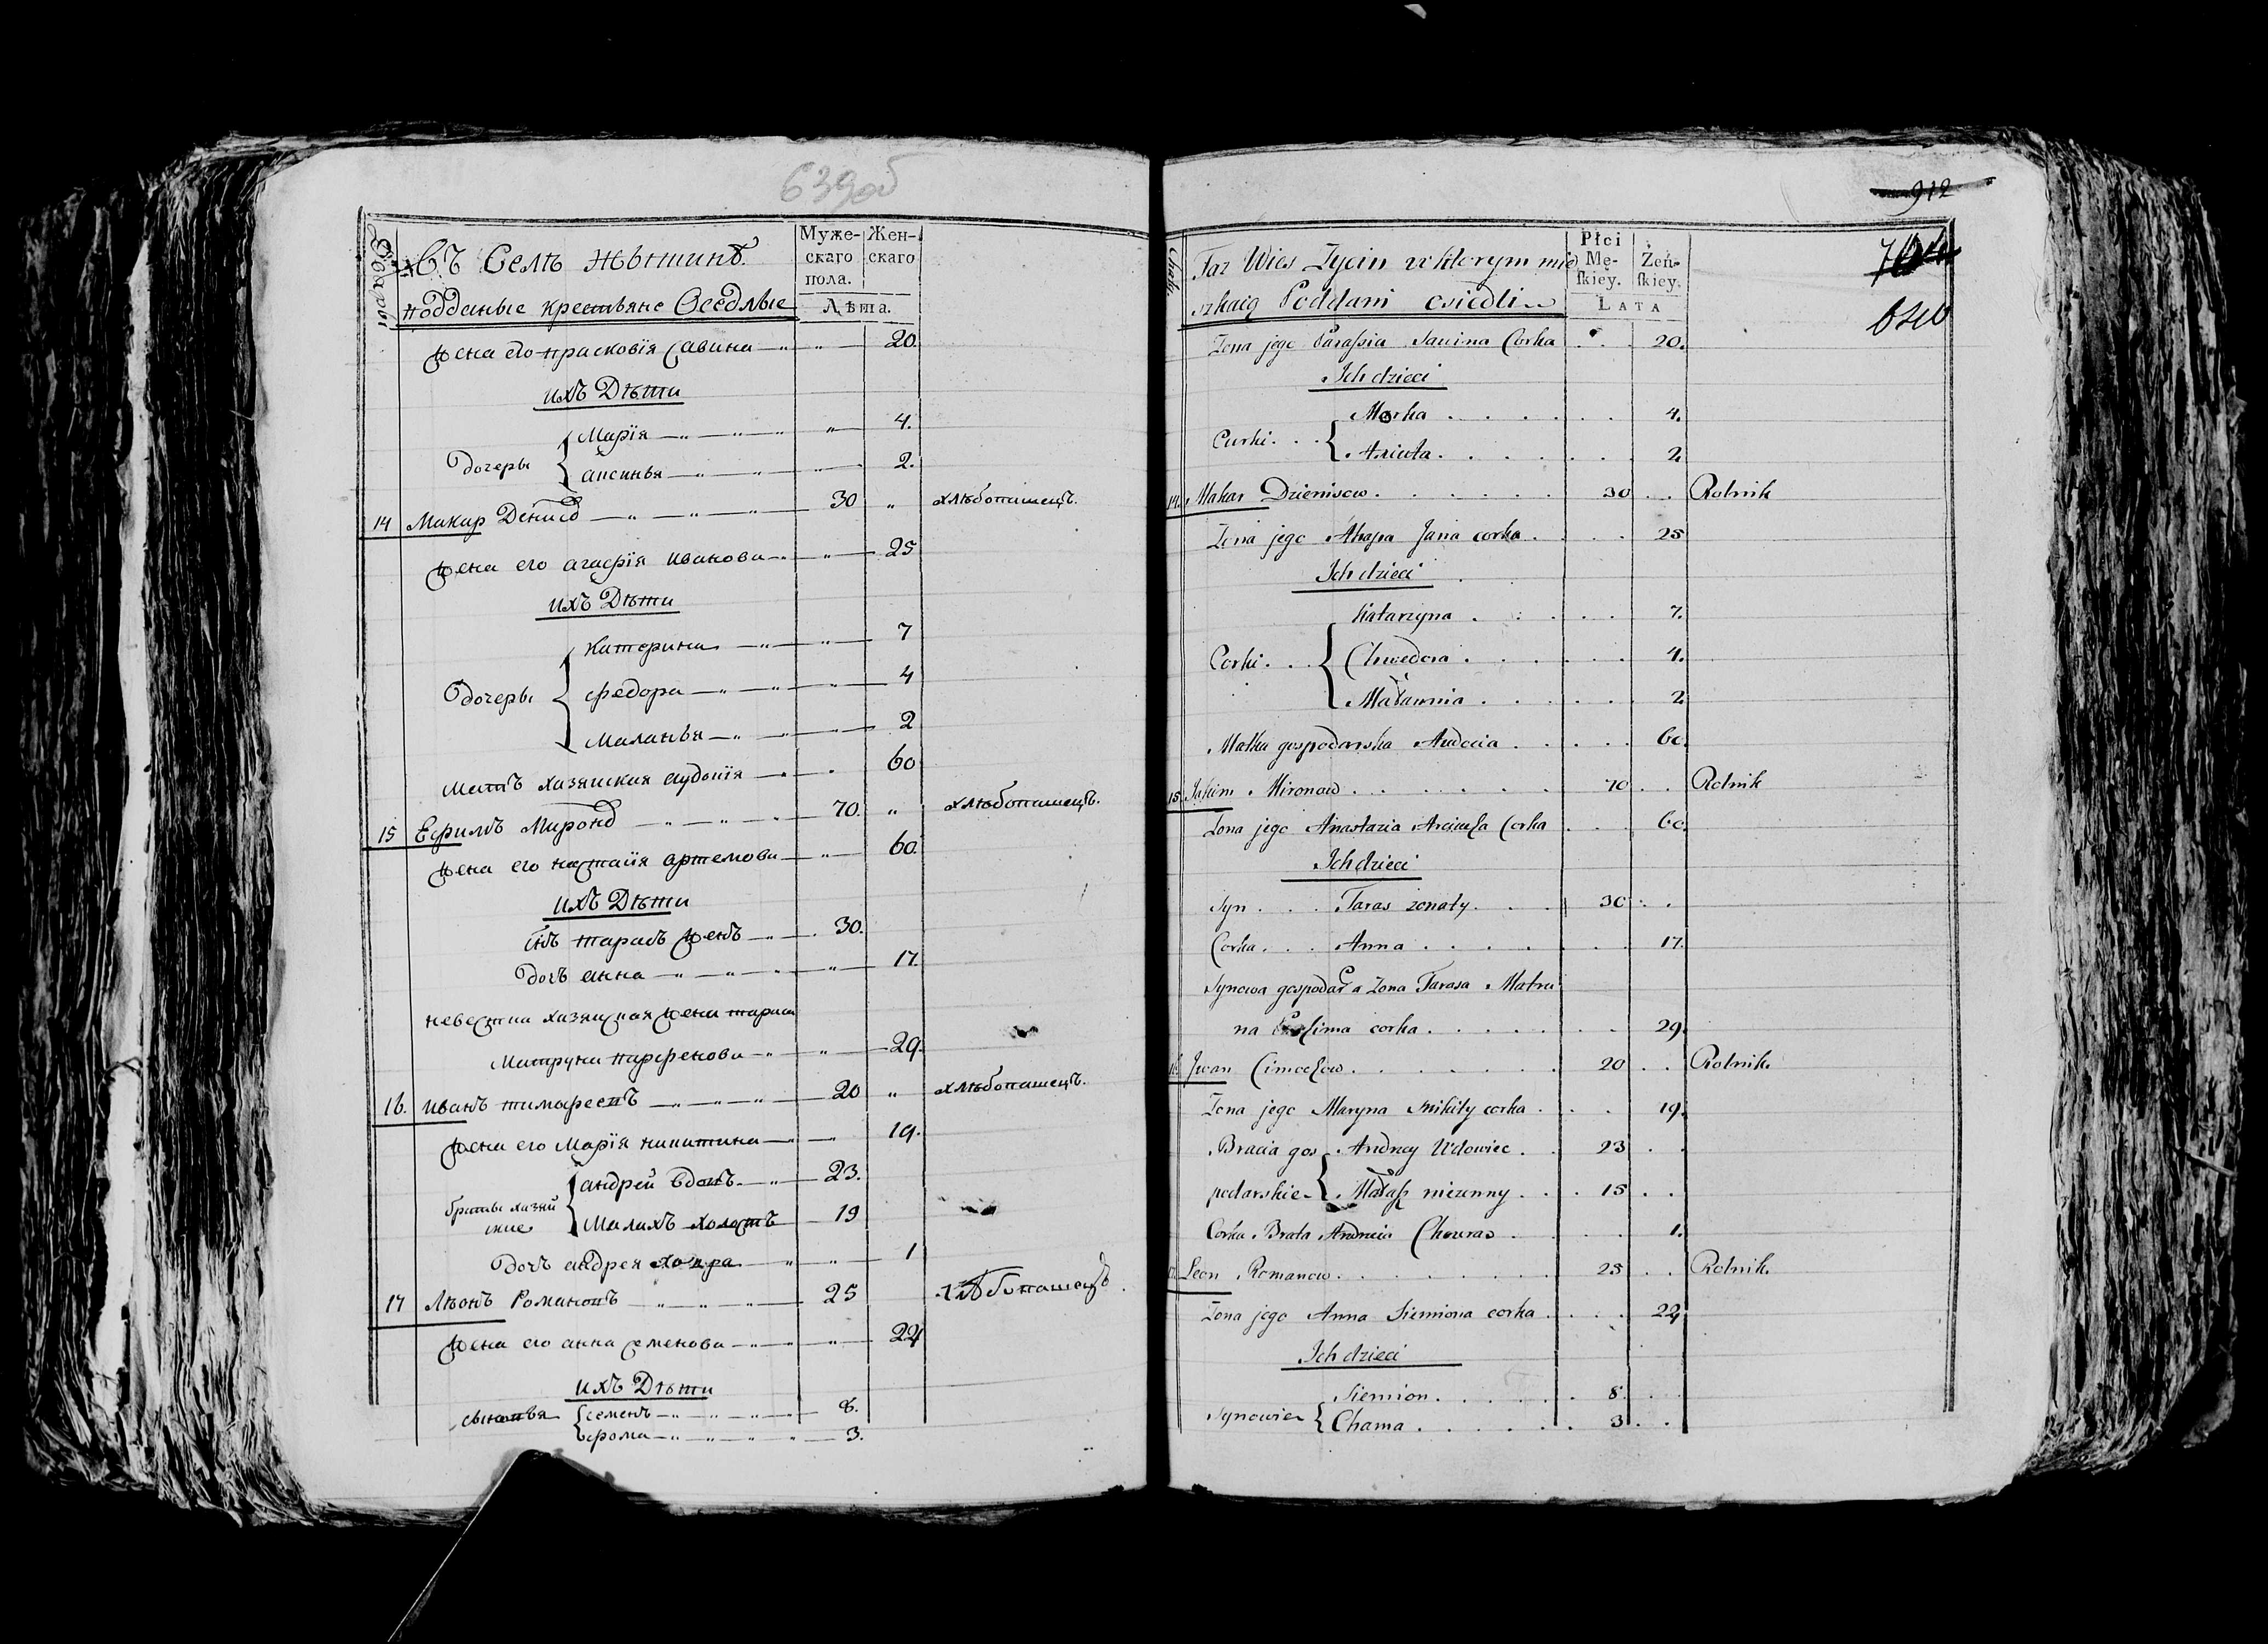 639об
Въ Селѣ Жытинѣ.
подданые крестьяне Оседлые
Муже-
скаго
пола.
Жен-
скаго
Лѣта.
жена его прасковія савина 20.
ихъ Дѣти
Дочеры
Марія 4.
аксинья 2.
14 Макар Денисо 30 " хлѣбопашецъ.
жена его агафія иванова 25
ихъ Дѣти
Дочеры
Катерина 7
федора 4
Маланья 2
Мать хазяйская аудокія 60
15 Ефимъ Мироно 70. " хлѣбопашецъ.
жена его настазія артемова 60.
ихъ Дѣти
снъ тарасъ жен 30.
Дочъ анна 17.
невестка хазяская жена тараса
Матруна парфенова 29.
16. иванъ тимофеевъ 20 " хлѣбопашецъ.
жена его Марія никитина 19.
братья хазяй
ские
андрей вдовъ 23.
Малахъ холостъ 19
Дочъ андрея ховра 1
17 Лѣонъ Романовъ 25 хлѣбопашецъ.
жена его анна семенова 22
ихъ Дѣти
сыновья
семенъ 8.
фома 3.
912
Taz Wies Zycin w ktorym mie
szkaią Poddani osiedli
Płci
Mę-
ſkiey.
Żeń-
ſkiey.
LATA
Zona jego Paraſsia Sawina Corka . . . 20.
Ich dzieci
Curki . . .
Marka . . . . 4.
Axiuta . . . . 2
14. Makar Dzienisow . . . . 30 . . Rolnik
Zona jego Ahapa Jana corka . . . 25
Ich dzieci
Corki . . .
Katarzyna . . . . 7.
Chwedora . . . . 4.
Maławnia . . . . 2
Matka gospodarska Audocia . . . . 60.
15. Jafim Mironow . . . . 70 . . Rolnik
Zona jego Anastazia Arciuſza Corka . . . 60.
Ich dzieci
Syn . . . Taras zonaty . . . 30 . .
Corka . . . Anna . . . . 17.
Synowa gospodara Zona Tarasa Matru
na corka . . . . 29.
16. Jwan Cimoszow . . . . 20 . . Rolnik.
Zona jego Maryna Mikity corka . . . 19.
Bracia gos
podarskie
Andrzey Wdowiec . . 23 . .
Małasz niezenny . . . 15 . .
Corka Brata Andreia Chowras . . . . 1.
17. Leon Romanow . . . . 25 . . Rolnik.
Zona jego Anna Siemiona corka . . . . 22
Ich dzieci
Synowie
Siemion . . . . 8. . .
Chama . . . . 3 . .